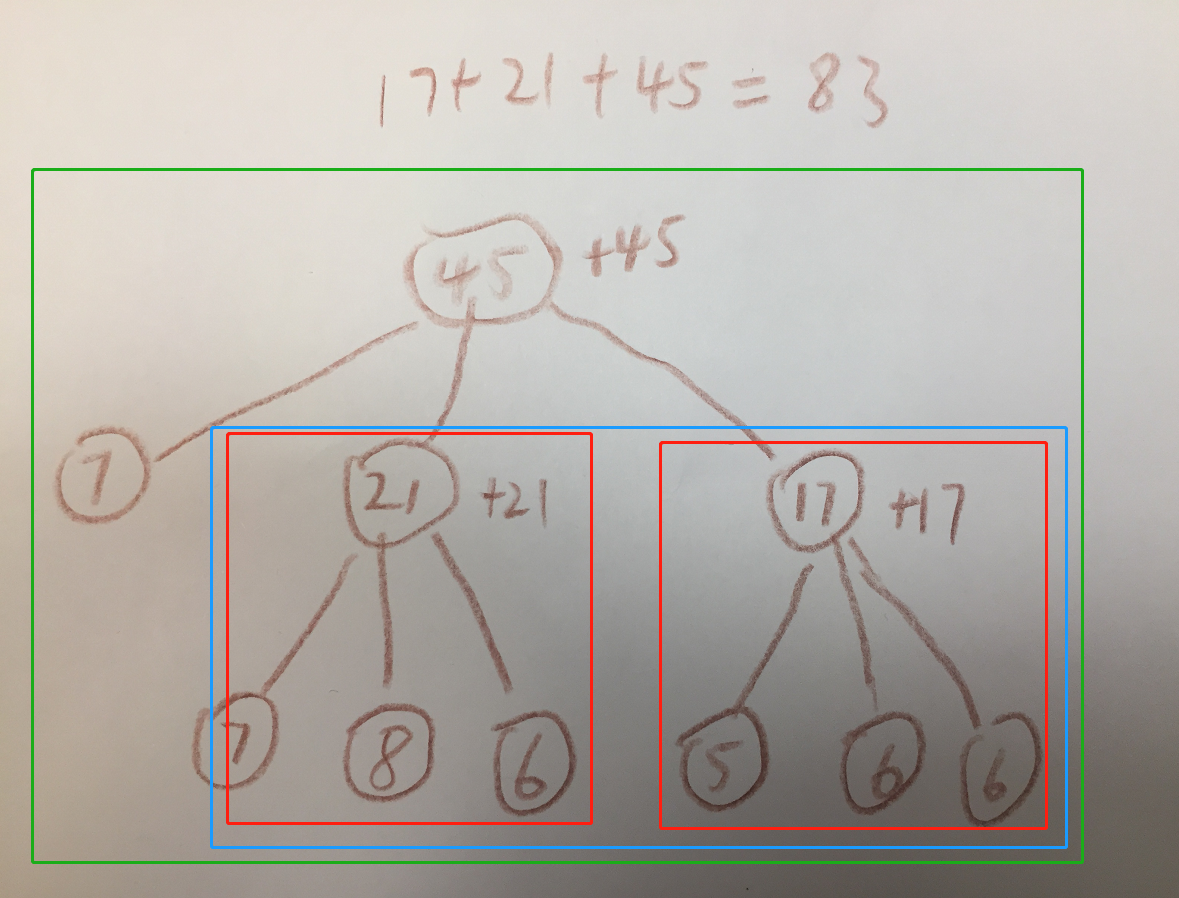 17+21+45=83
45 +45
7 21 +21 17 +17
7 8 6 5 6 6